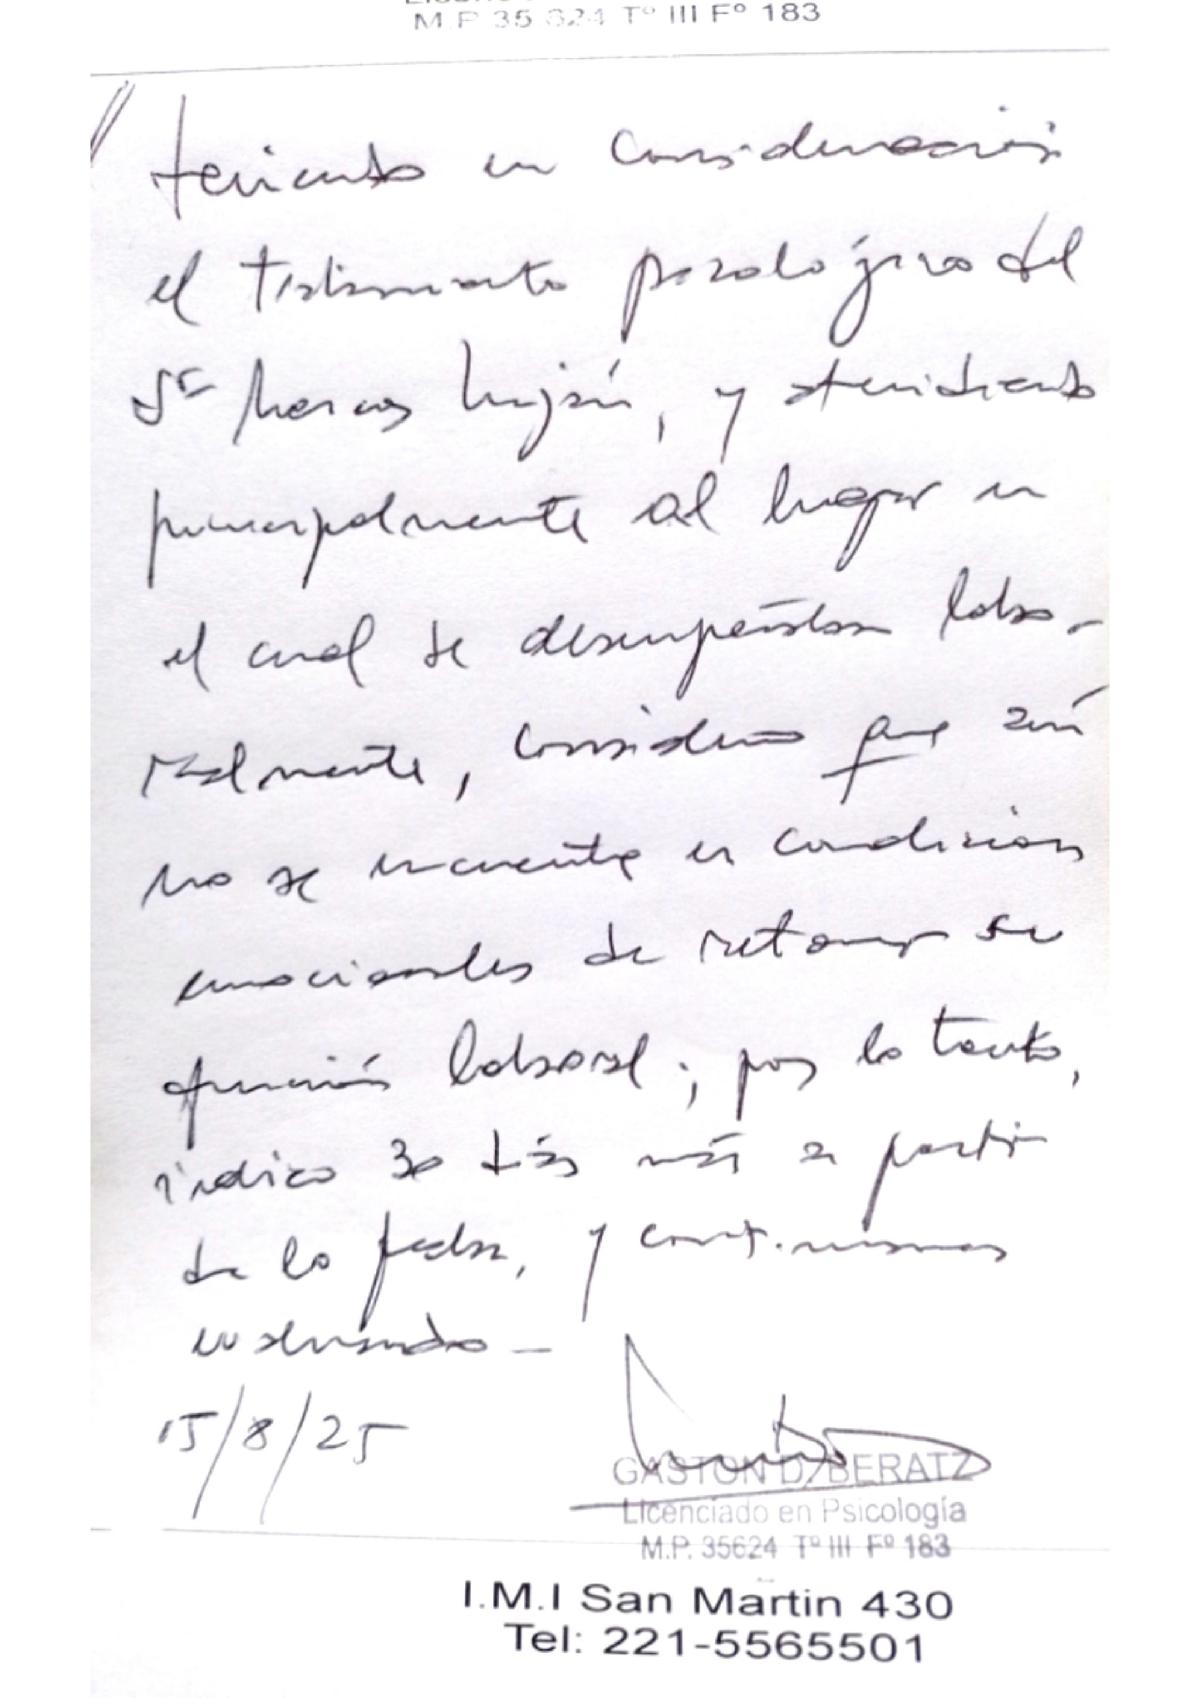 M.P. 35624 Tº III Fº 183
// teniendo en consideración
el tratamiento psicológico del
Sr Marcos Luján, y atendiendo
principalmente al lugar en
el cual se desempeña labo-
ralmente, considero que aún
no se encuentra en condiciones
emocionales de retomar su
función laboral; por lo tanto,
indico 30 días más a partir
de la fecha, y continuamos
evaluando -
15/8/25
GASTON D. BERATZ
Licenciado en Psicología
M.P. 35624 Tº III Fº 183
I.M.I San Martin 430
Tel: 221-5565501